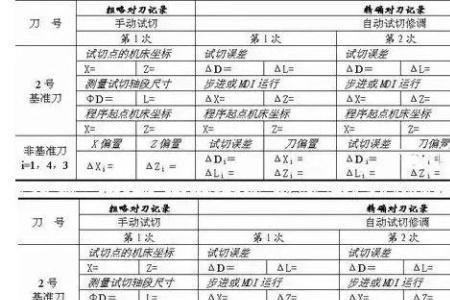 刀 号 粗略对刀记录 精确对刀记录
手动试切 自动试切修调
第 1 次 第 1 次 第 2 次
2 号 基准刀 试切点的机床坐标 试切误差 试切误差
X= Z= ΔD= ΔL= ΔD= ΔL=
测量试切轴段尺寸 步进或 MDI 运行 步进或 MDI 运行
ΦD= L= ΔX= ΔZ= ΔX= ΔZ=
程序起点机床坐标 程序起点机床坐标 程序起点机床坐标
X= Z= X= Z= X= Z=
非基准刀 i=1，4，3 X 偏置 Z 偏置 试切误差 刀偏置 试切误差 刀偏
ΔXi= ΔZi= ΔDi= ΔXi= ΔDi=
ΔLi= ΔZi= ΔLi= ΔZi=
刀 号 粗略对刀记录 精确对刀记录
手动试切 自动试切修调
第 1 次 第 1 次 第 2 次
2 号 基准刀 试切点的机床坐标 试切误差 试切误差
X= Z= ΔD= ΔL= ΔD= ΔL=
测量试切轴段尺寸 步进或 MDI 运行 步进或 MDI 运行
ΦD= L= ΔX= ΔZ= ΔX= ΔZ=